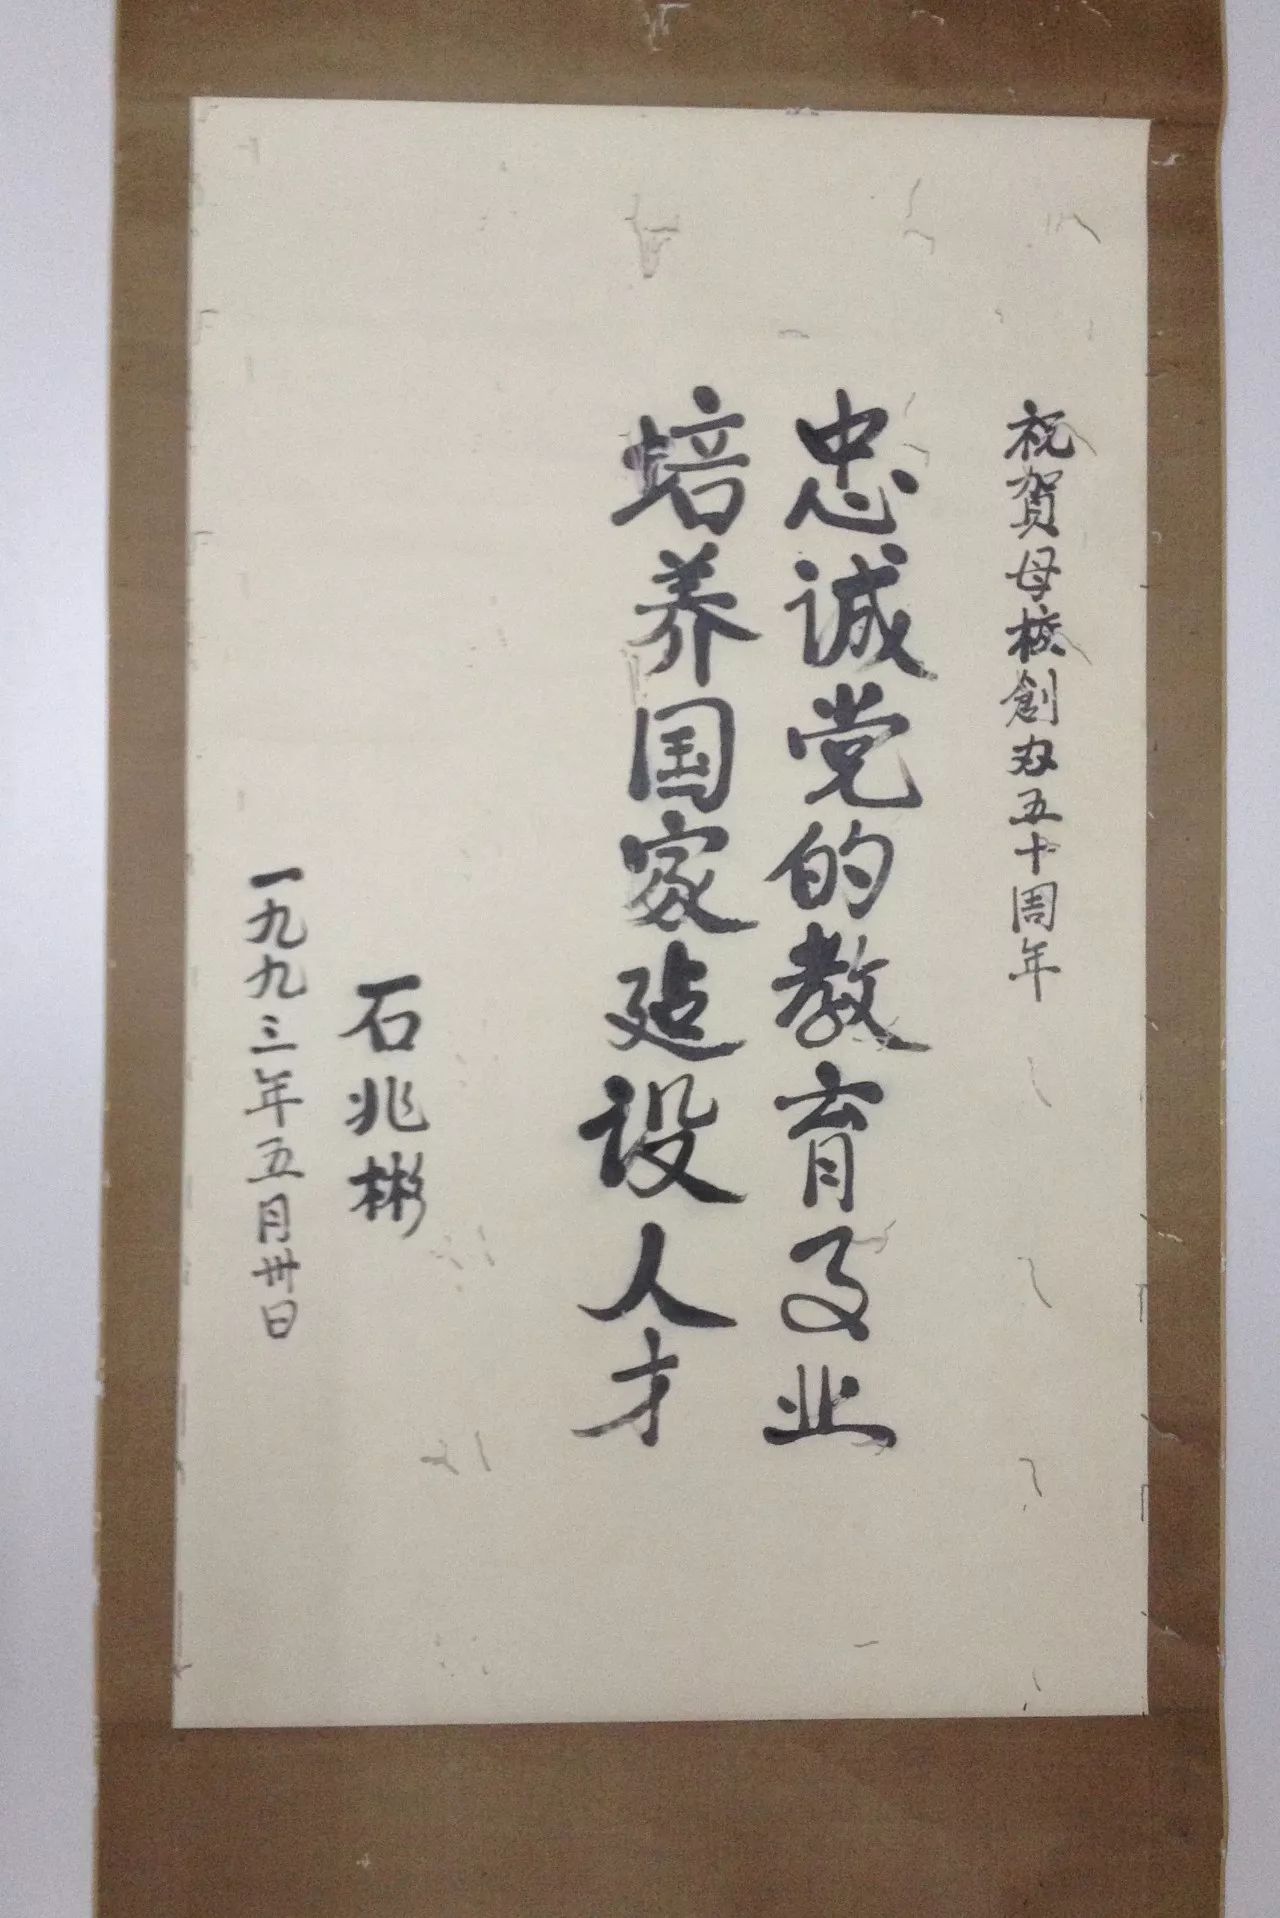 祝賀母校創办五十周年
忠诚党的教育事业
培养国家建设人才
石兆彬
一九九三年五月卅日